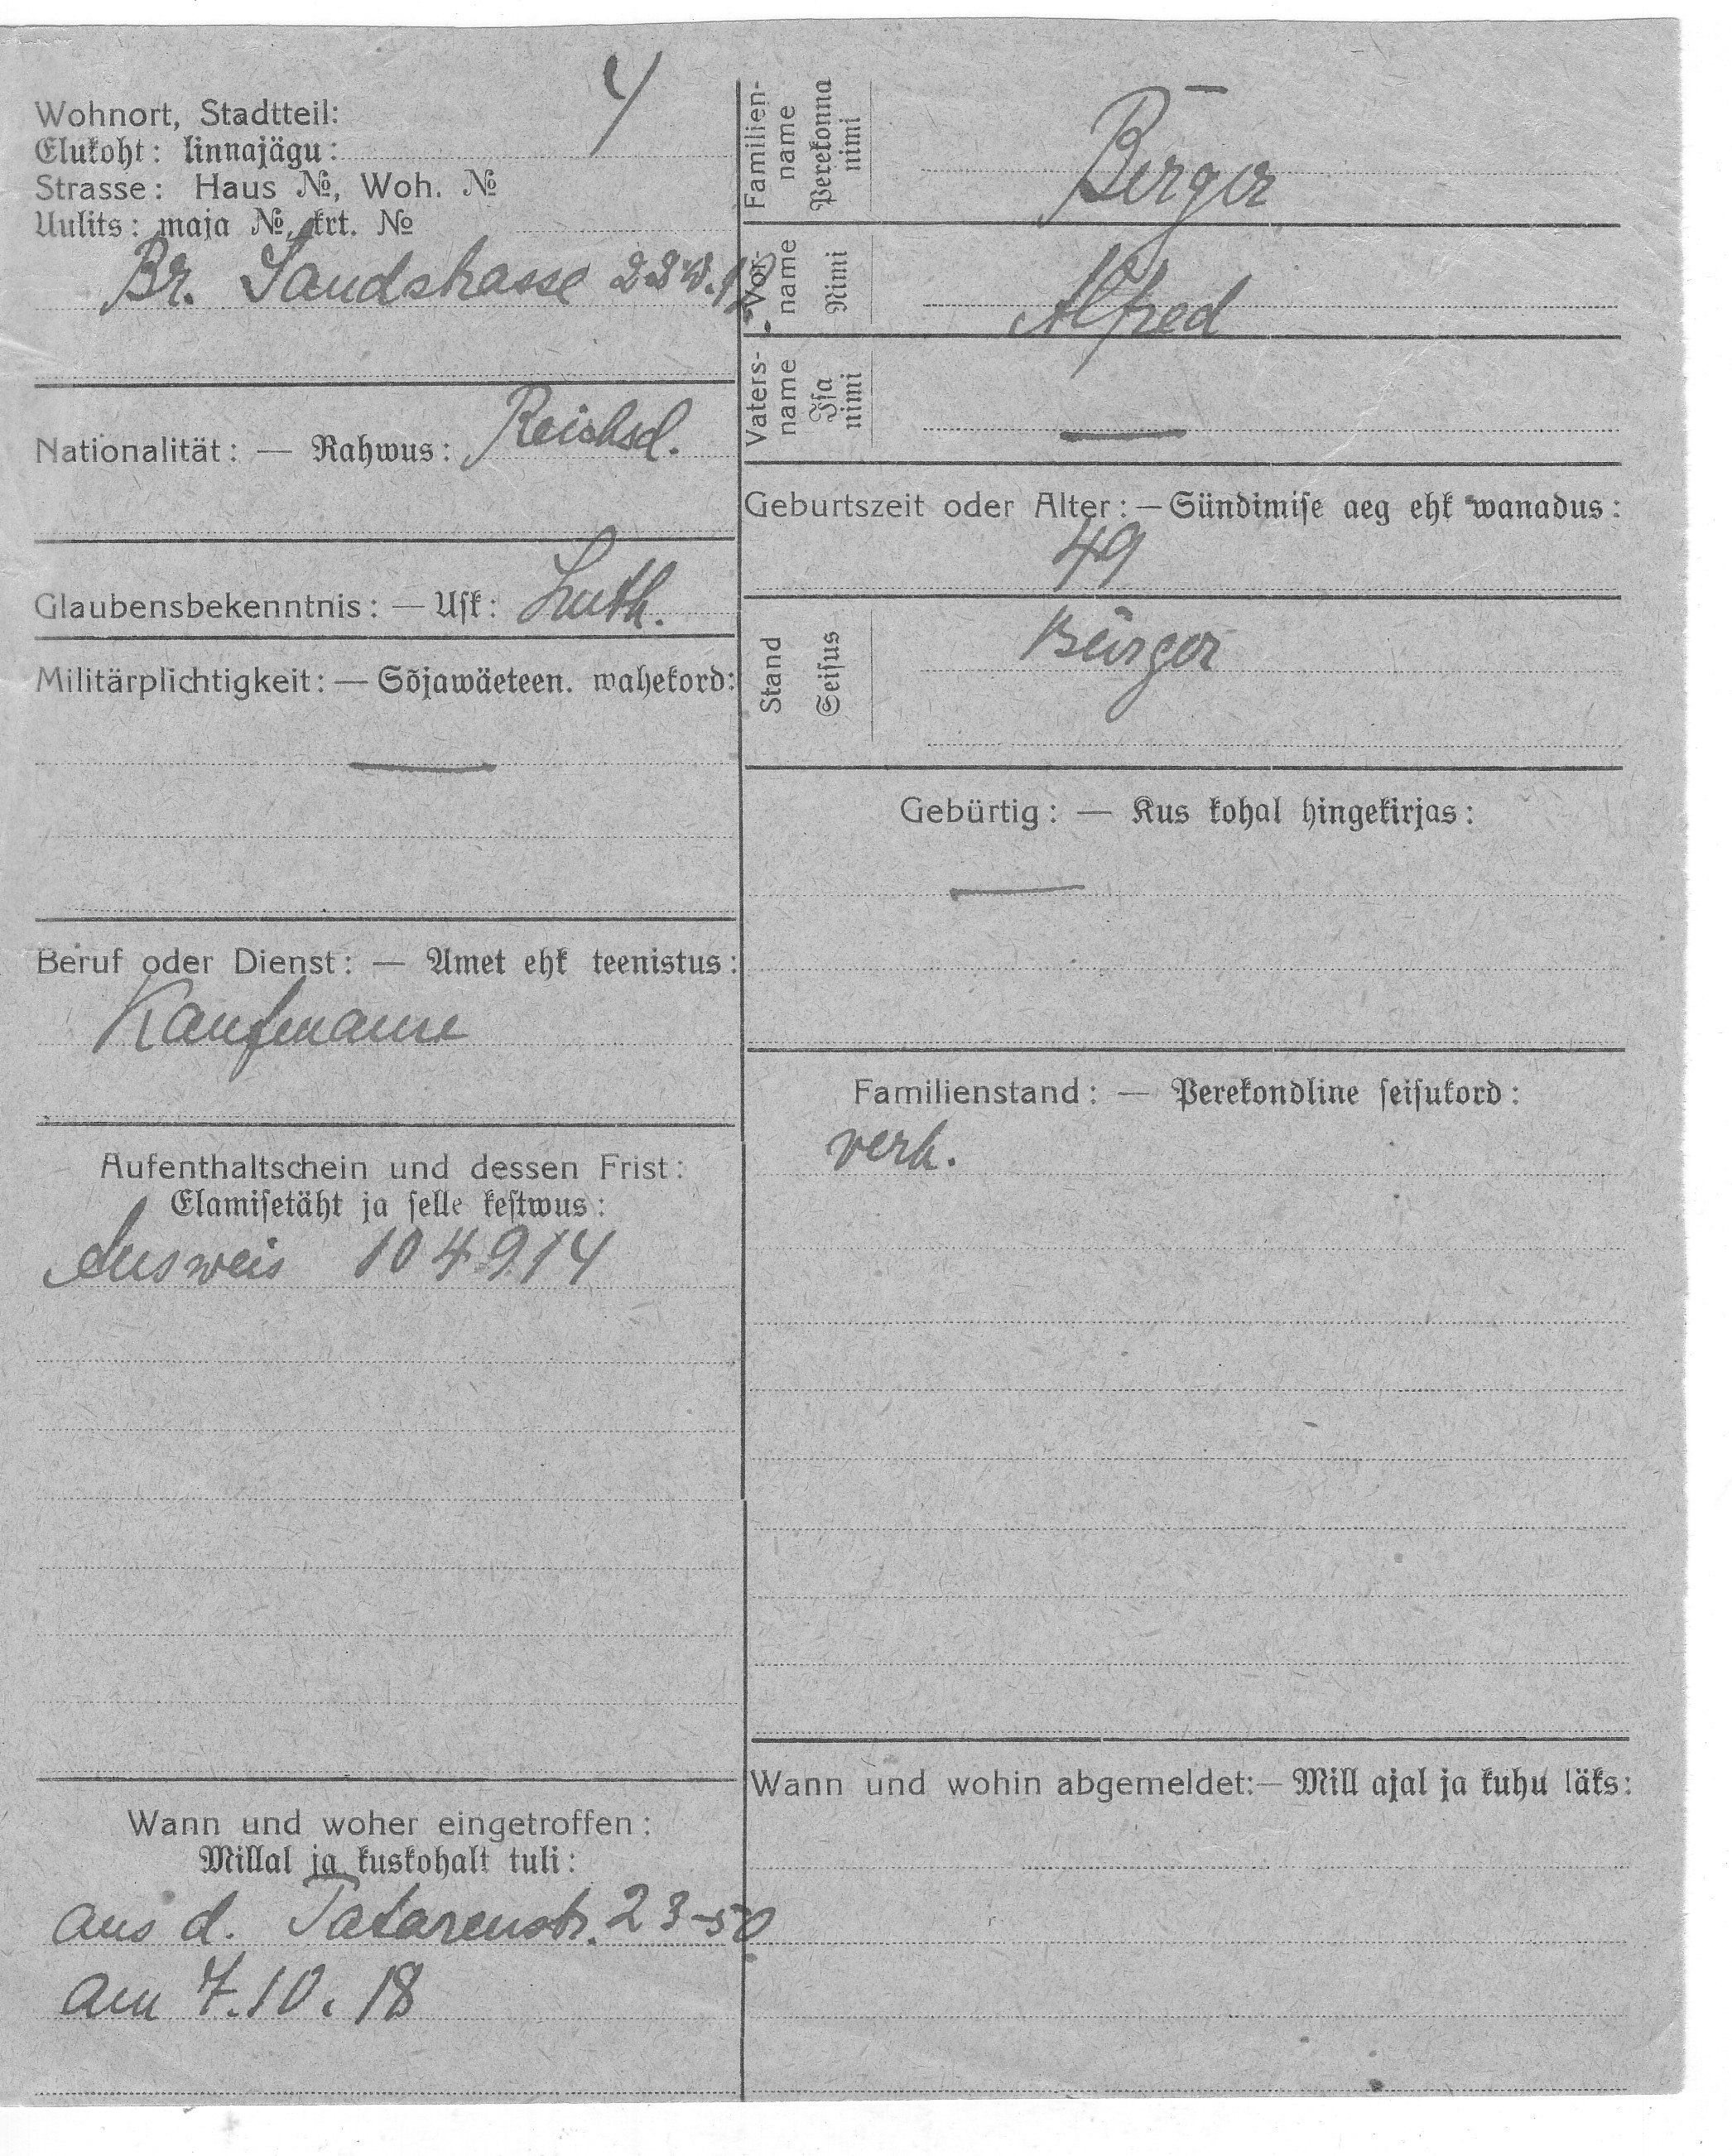 4
Wohnort, Stadtteil:
Elukoht: linnajägu:
Strasse: Haus №, Woh. №
Uulits: maja №, krt. №
Br. Sandstrasse 22 W.
Nationalität: — Rahwus: Reichsd.
Glaubensbekenntnis: — Usk: Luth.
Militärplichtigkeit: — Sõjawäeteen. wahekord:
—
Beruf oder Dienst: — Amet ehk teenistus:
Kaufmann
Aufenthaltschein und dessen Frist:
Elamisetäht ja selle kestwus:
Ausweis 104914
Wann und woher eingetroffen:
Millal ja kuskohalt tuli:
aus d. Tatarenstr. 23-50
am 7.10.18
Familien-
name
Perekonna
nimi
Berger
Vor-
name
Nimi
Alfred
Vaters-
name
Isa
nimi
—
Geburtszeit oder Alter: — Sündimise aeg ehk wanadus:
49
Stand
Seisus
Bürger
Gebürtig: — Kus kohal hingekirjas:
—
Familienstand: — Perekondline seisukord:
verh.
Wann und wohin abgemeldet: — Mill ajal ja kuhu läks: